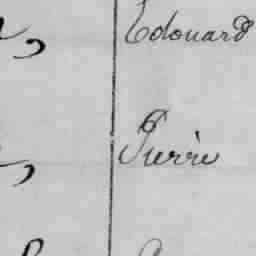 Edouard
Pierre